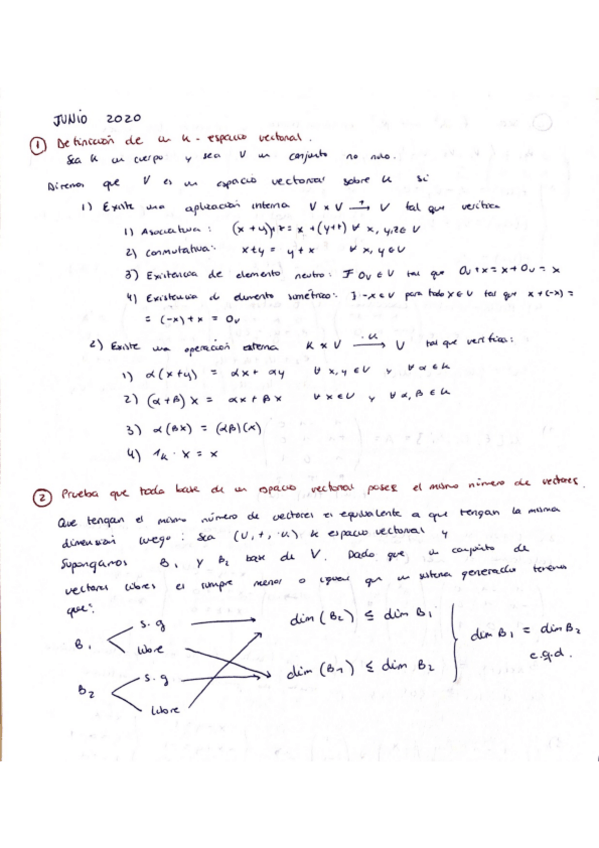 JUNIO 2020
① Definición de un k-espacio vectorial.
Sea k un cuerpo y sea V un conjunto no nulo.
Diremos que V es un espacio vectorial sobre k si
1) Existe una aplicación interna V x V →⁺ V tal que verifica
1) Asociativa: (x+y)+z = x+(y+z) ∀ x,y,z ∈ V
2) Conmutativa: x+y = y+x ∀ x,y ∈ V
3) Existencia de elemento neutro: ∃ 0ᵥ ∈ V tal que 0ᵥ+x = x+0ᵥ = x
4) Existencia de elemento simétrico: ∃ -x ∈ V para todo x ∈ V tal que x+(-x) =
= (-x)+x = 0ᵥ
2) Existe una operación externa K x V →·ᵏ V tal que verifica:
1) α(x+y) = αx + αy ∀ x,y ∈ V y ∀ α ∈ k
2) (α+β)x = αx + βx ∀ x ∈ V y ∀ α,β ∈ k
3) α(βx) = (αβ)(x)
4) 1ₖ · x = x
② Prueba que toda base de un espacio vectorial posee el mismo número de vectores.
Que tengan el mismo número de vectores es equivalente a que tengan la misma
dimensión luego: Sea (V, +, ·k) k espacio vectorial y
supongamos B₁ y B₂ base de V. Dado que un conjunto de
vectores libres es siempre menor o igual que un sistema generador tenemos
que:
B₁ s.g libre
B₂ s.g libre
dim (B₂) ≤ dim B₁
dim (B₁) ≤ dim B₂
dim B₁ = dim B₂
c.q.d.